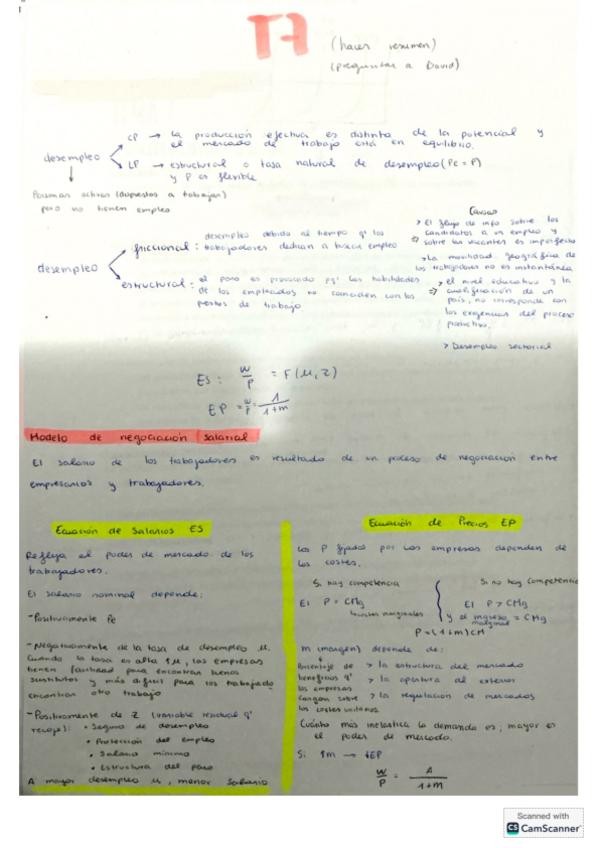 T7
(hacer resumen)
(preguntar a David)
desempleo
CP → la producción efectiva es distinta de la potencial y
el mercado de trabajo está en equilibrio.
LP → estructural o tasa natural de desempleo (Pe = P)
y P es flexible
Personas activas (dispuestos a trabajar)
pero no tienen empleo
desempleo
friccional: desempleo debido al tiempo q' los
trabajadores dedican a buscar empleo
estructural: el paro es provocado pq' las habilidades
de los empleados no coinciden con los
puestos de trabajo
Causas
> El flujo de info sobre los
candidatos a un empleo y
⇒ sobre las vacantes es imperfecto
> La movilidad geográfica de
los trabajadores no es instantánea
> el nivel educativo y la
⇒ cualificación de un
país, no corresponde con
las exigencias del proceso
productivo.
> Desempleo sectorial
ES: W/P = F(μ, z)
EP = W/P = 1/1+m
Modelo de negociación salarial
El salario de los trabajadores es resultado de un proceso de negociación entre
empresarios y trabajadores.
Ecuación de Salarios ES
Refleja el poder de mercado de los
trabajadores.
El salario nominal depende:
-Positivamente Pe
-Negativamente de la tasa de desempleo μ.
Cuando la tasa es alta ↑μ, las empresas
tienen facilidad para encontrar buenos
sustitutos y más difícil para los trabajado
encontrar otro trabajo
-Positivamente de Z (variable residual q'
recoge): • Seguro de desempleo
• Protección del empleo
• Salario mínimo
• Estructura del paro
A mayor desempleo μ, menor salario
Ecuación de Precios EP
Los P fijados por las empresas dependen de
los costes.
Si hay competencia
El P = CMg
costes marginales
Si no hay competencia
El P > CMg
y el ingreso marginal = CMg
P = (1+m)CM
m (margen) depende de:
Porcentaje de
beneficios q'
las empresas
cargan sobre
los costes unitarios
> la estructura del mercado
> la apertura al exterior
> la regulación de mercados
Cuánto más inelástica la demanda es, mayor es
el poder de mercado.
Si ↑m → ↓EP
W/P = 1/1+m
Scanned with
CS CamScanner